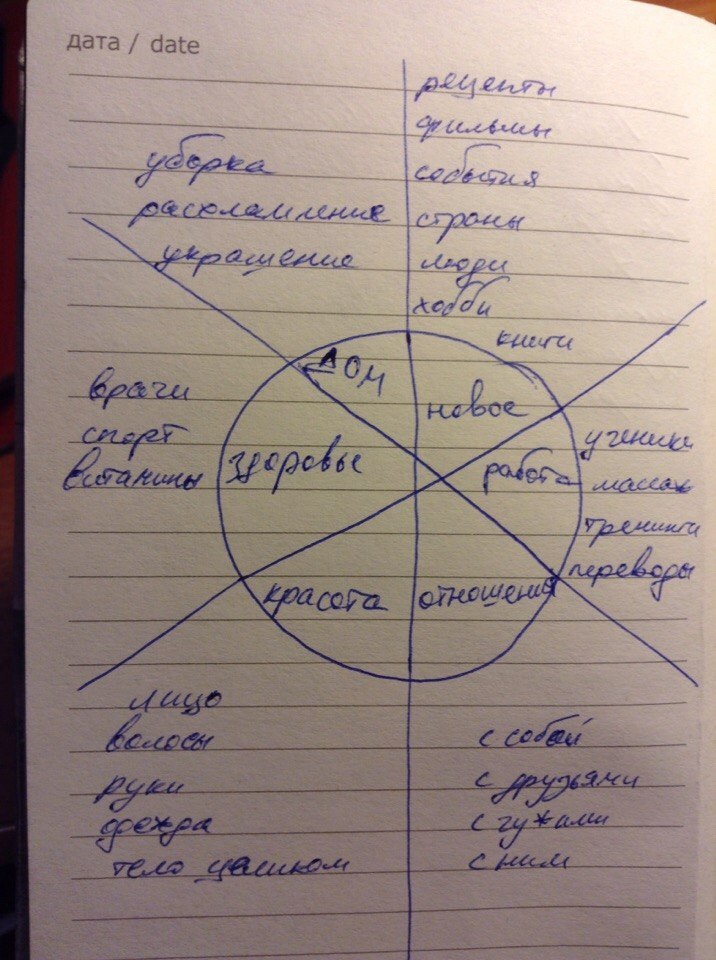 дата / date
рецепты
фильмы
события
страны
люди
хобби
книги
уборка
расхламление
украшение
дом
новое
врачи
спорт
витамины
здоровье
работа
ученики
массаж
тренинги
переводы
красота
отношения
лицо
волосы
руки
одежда
тело целиком
с собой
с друзьями
с чужими
с ним